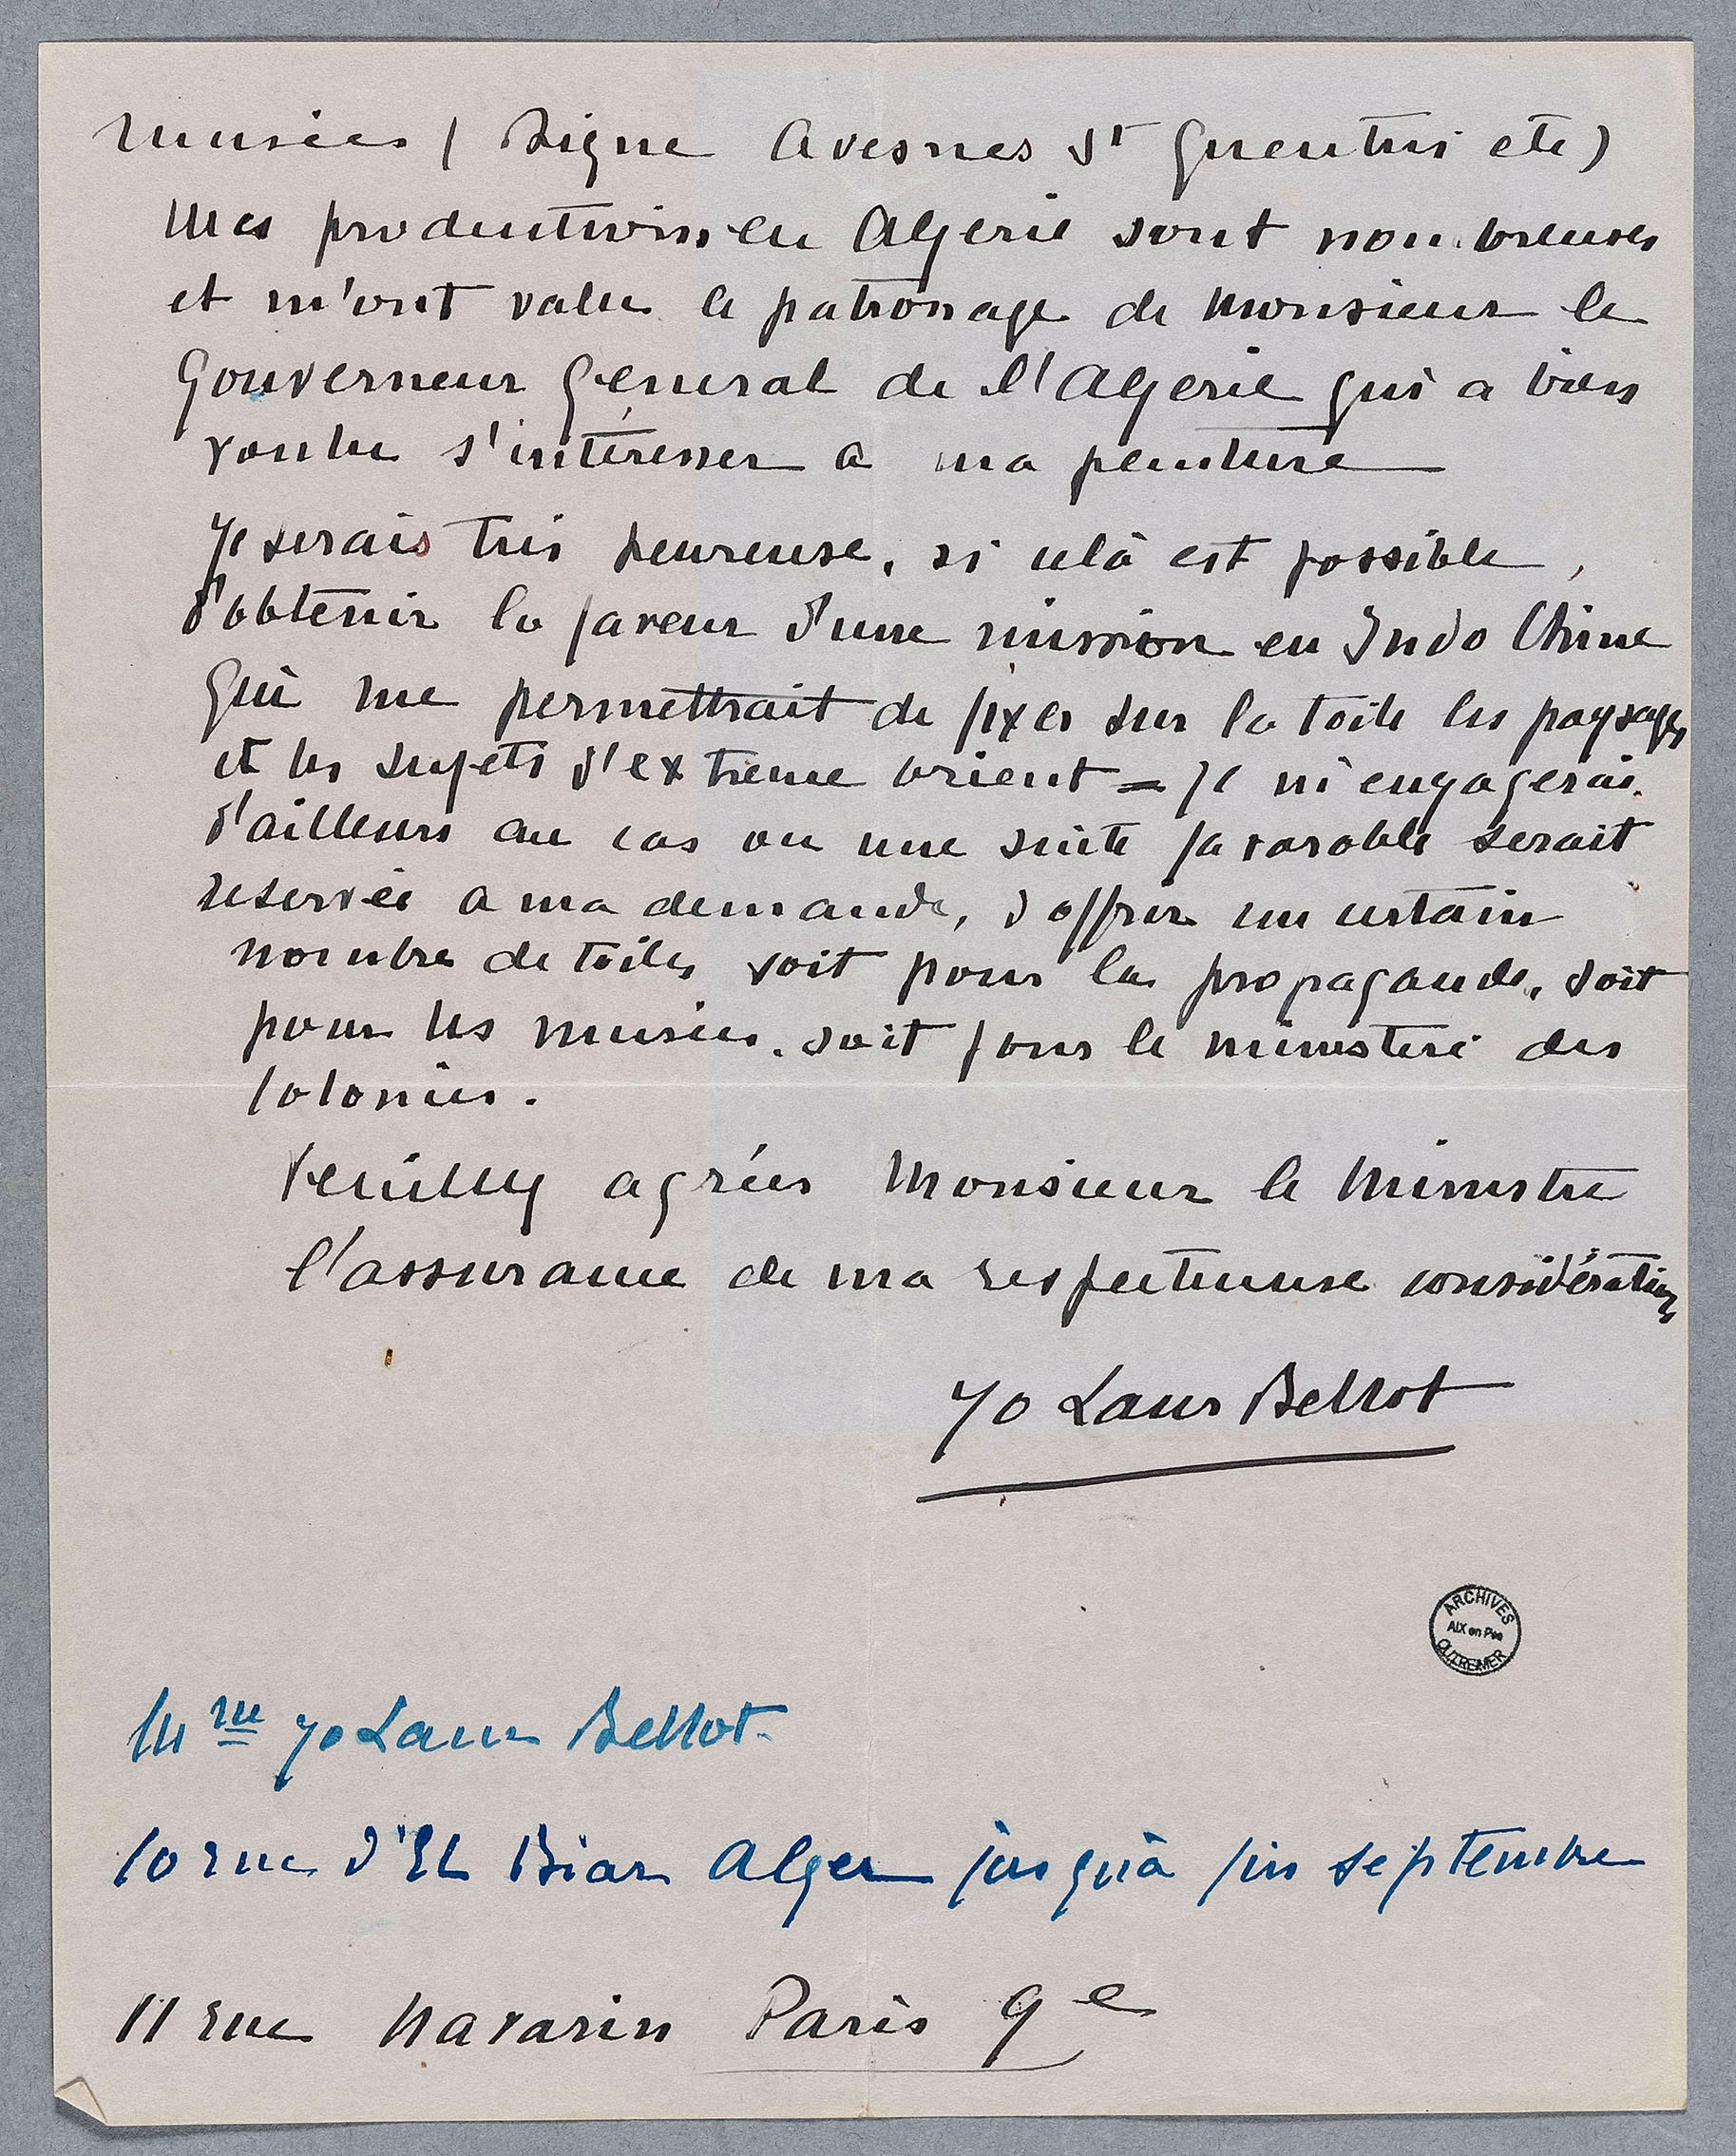 musées ( Digne Avesnes St Quentin etc)
Mes productions en Algerie sont nombreuses
et m'ont value le patronage de Monsieur le
Gouverneur General de l'Algerie qui a bien
voulu s'intéresser a ma peinture
Je serais très heureuse, si celà est possible,
d'obtenir la faveur d'une mission en Indo Chine
qui me permettrait de fixer sur la toile les paysages
et les sujets d'extreme orient = Je m'engagerai
d'ailleurs au cas ou une suite favorable serait
reservée a ma demande, d'offrir un certain
nombre de toiles soit pour la propagande, soit
pour les musées, soit pour le ministère des
Colonies.
Veuillez agréer Monsieur le Ministre
l'assurance de ma respectueuse considération
Yo Laur Bellot
ARCHIVES
AIX en Pce
OUTRE-MER
Mme Yo Laur Bellot.
10 rue d'El Biar Alger jusqu'à fin septembre
11 rue Navarin Paris 9e